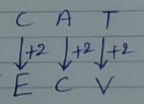 C A T
+2 +2 +2
E C V